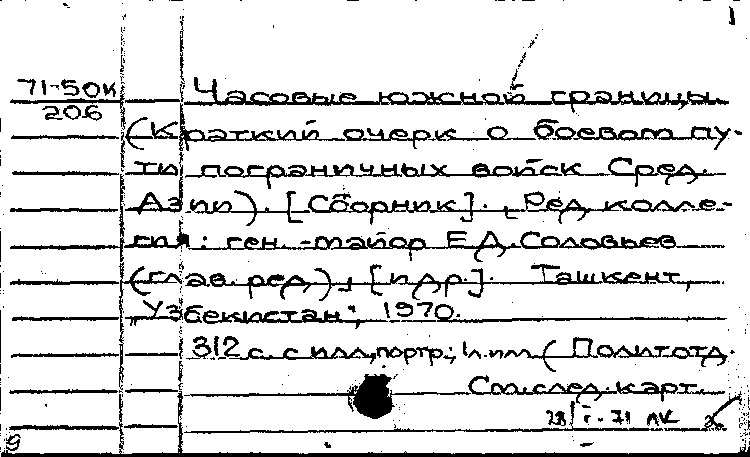 1
71-50к
206
Часовые южной границы.
(Краткий очерк о боевом пу-
ти пограничных войск Сред.
Азии). [Сборник]. Ред. колле-
гия: ген.-майор Е.Д. Соловьев
(глав. ред.) [и др.]. Ташкент,
„Узбекистан", 1970.
312 с. с илл., портр.; 1 л. илл. (Политотд.
См. след. карт.
28/I-71 ЛК
9